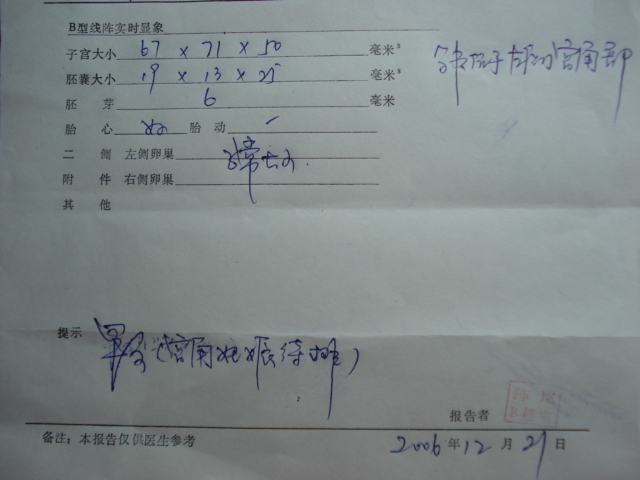 B型线阵实时显象
子宫大小 67 × 71 × 50 毫米³
胚囊大小 19 × 13 × 25 毫米³
胚芽 6 毫米
胎心 胎动 -
二侧 左侧卵巢
附件 右侧卵巢
其他
宫角部
提示 早孕(宫角妊娠待排)
报告者
备注:本报告仅供医生参考
2006年12月21日